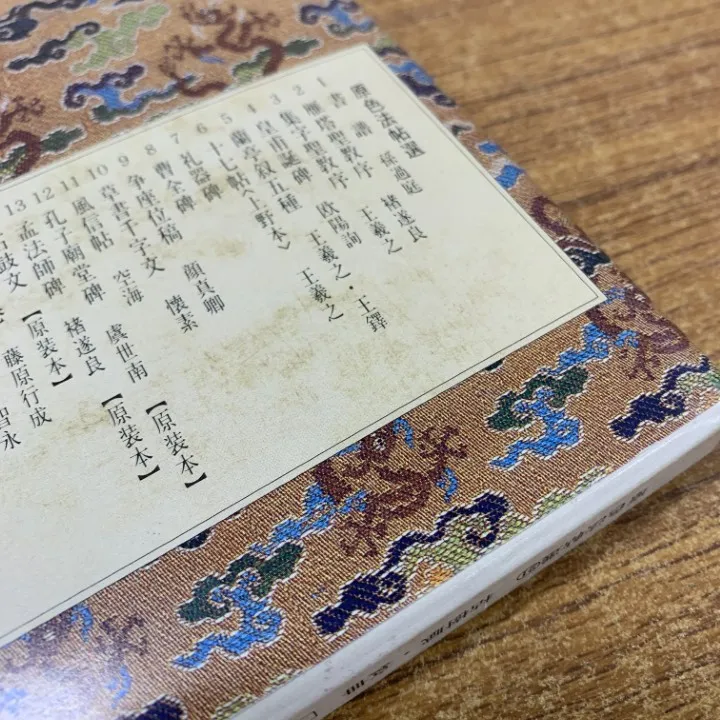 原色法帖選
1 書譜 孫過庭
2 雁塔聖教序 褚遂良
3 集字聖教序 王羲之
4 皇甫誕碑 欧陽詢
5 蘭亭叙五種 王羲之・王鐸
6 十七帖〈上野本〉 王羲之
7 礼器碑
8 曹全碑
9 争座位稿 顔真卿
10 草書千字文 懐素
11 風信帖 空海
12 孔子廟堂碑 虞世南【原装本】
13 孟法師碑 褚遂良【原装本】
鼓文【原装本】
藤原行成
智永